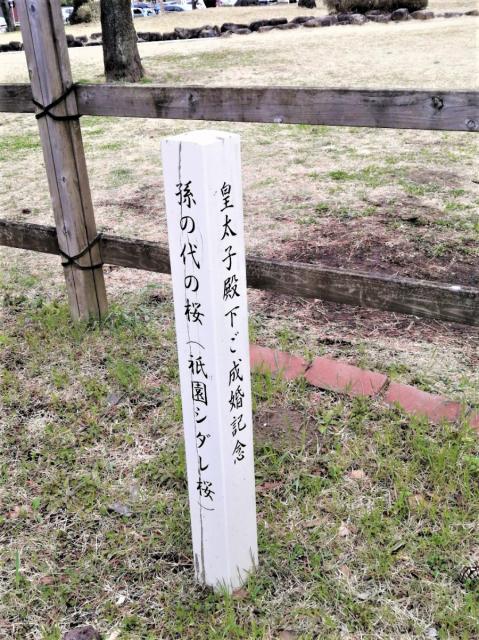 皇太子殿下ご成婚記念
孫の代の桜(祇園シダレ桜)